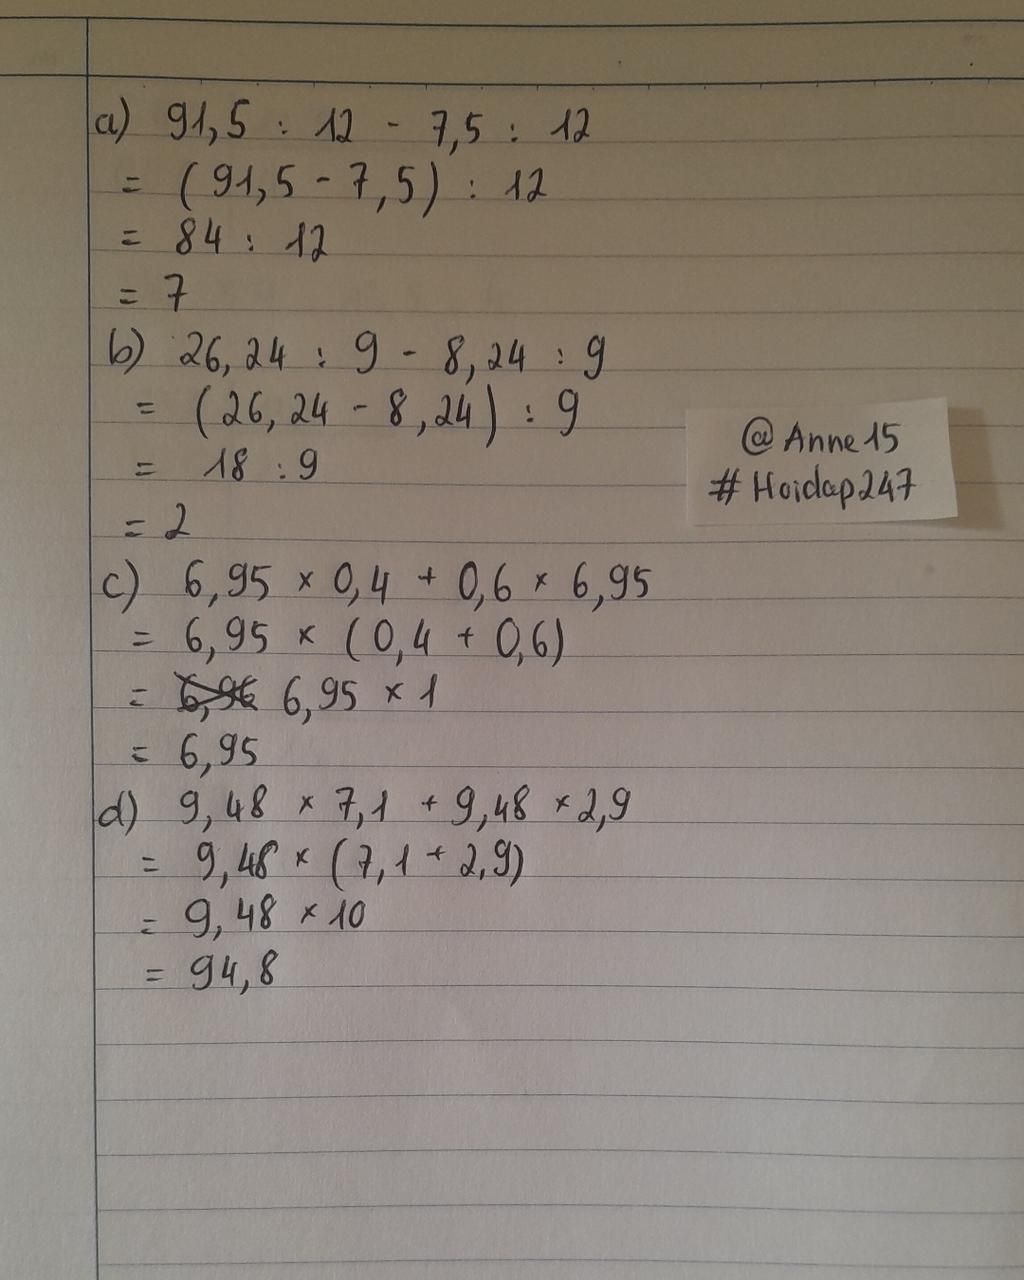 a) 91,5 : 12 - 7,5 : 12
= (91,5 - 7,5) : 12
= 84 : 12
= 7
b) 26,24 : 9 - 8,24 : 9
= (26,24 - 8,24) : 9
= 18 : 9
= 2
@Anne15
#Hoidap247
c) 6,95 × 0,4 + 0,6 × 6,95
= 6,95 × (0,4 + 0,6)
= 6,95 × 1
= 6,95
d) 9,48 × 7,1 + 9,48 × 2,9
= 9,48 × (7,1 + 2,9)
= 9,48 × 10
= 94,8